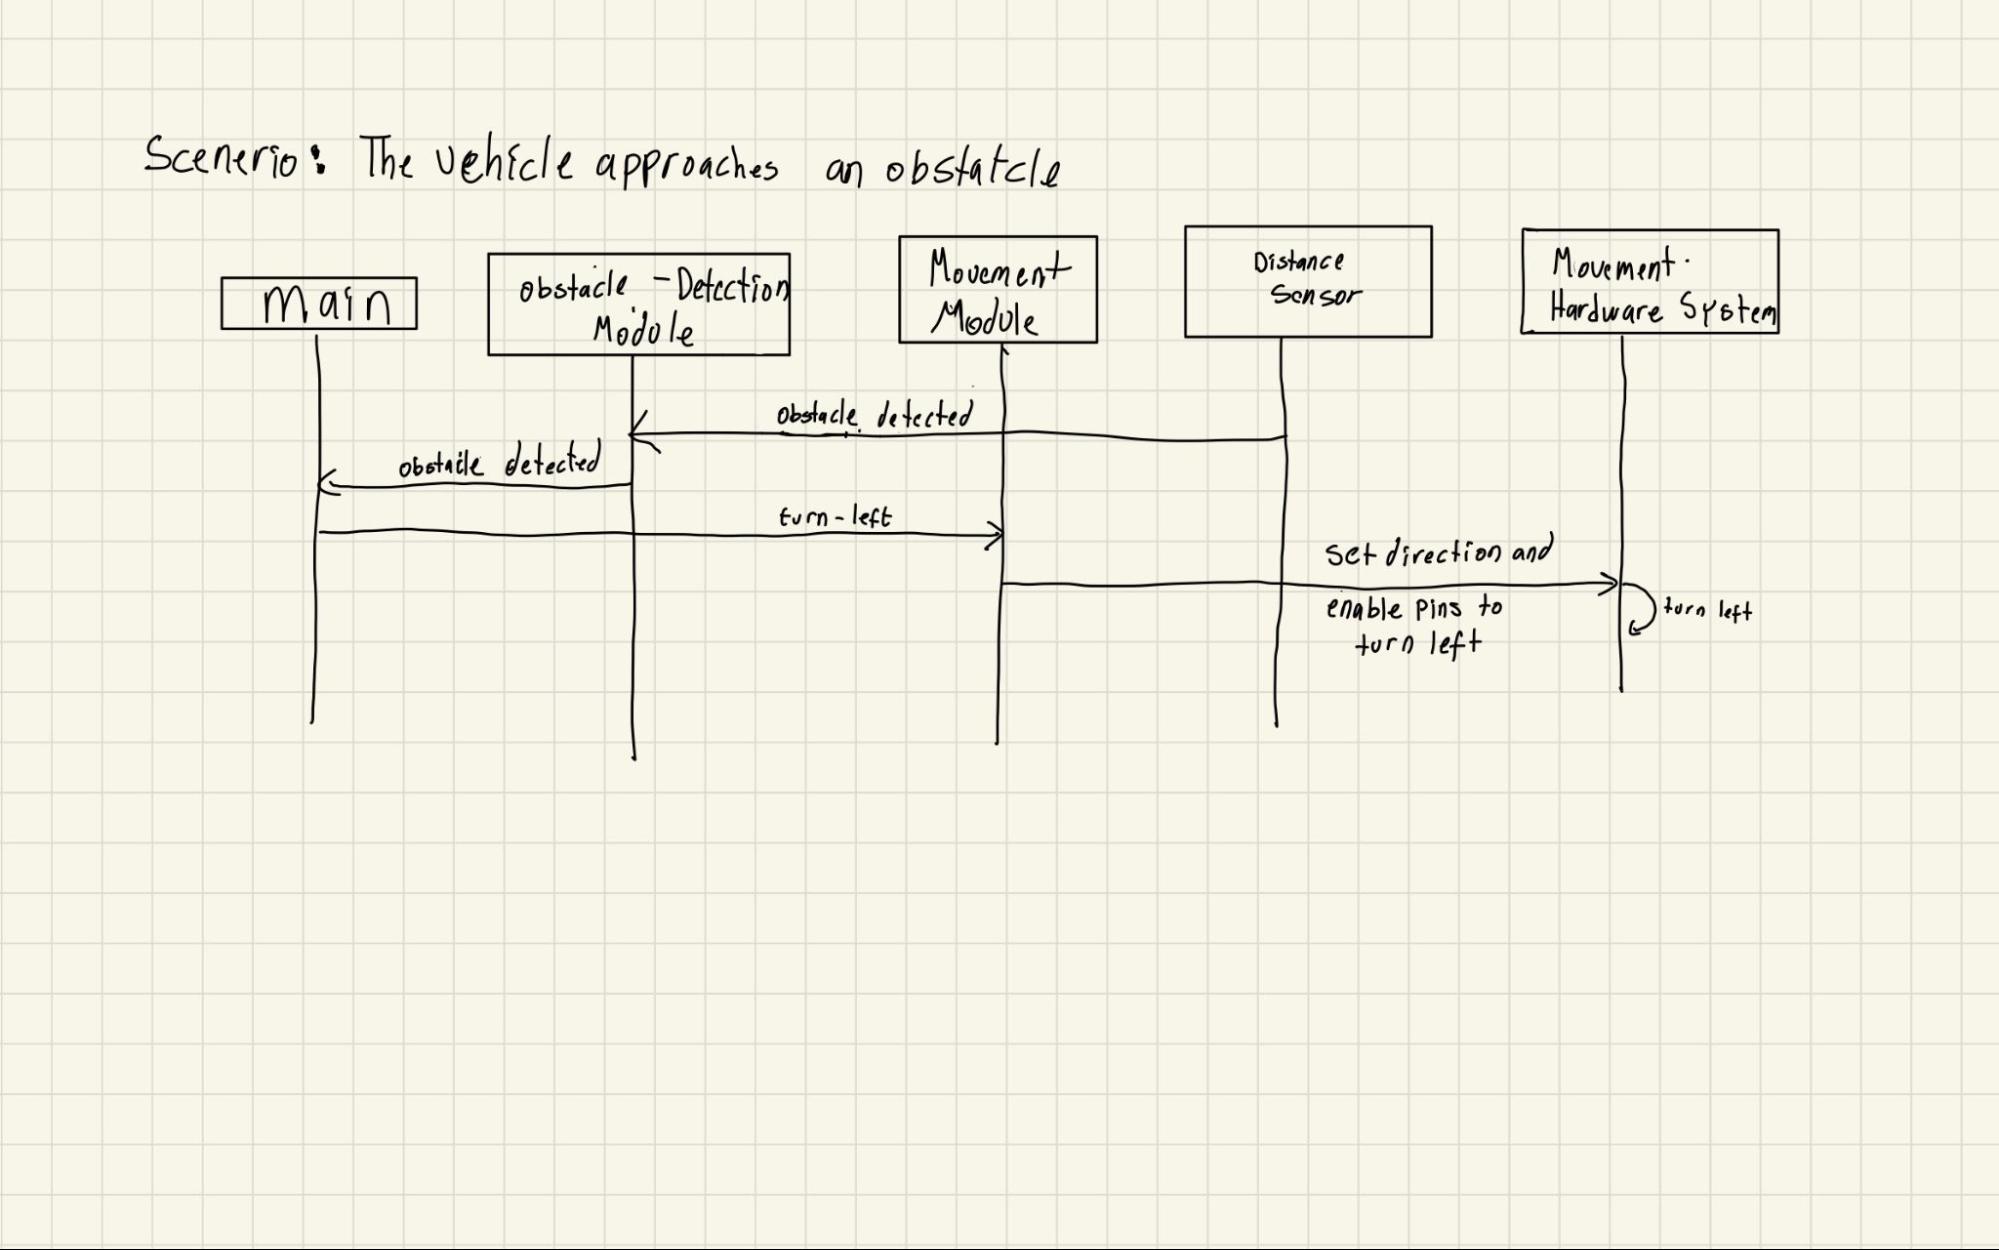 Scenerio: The vehicle approaches an obstatcle
Main
Obstacle - Detection
Module
Movement
Module
Distance
Sensor
Movement
Hardware System
obstacle detected
obstacle detected
turn-left
set direction and
enable pins to
turn left
turn left